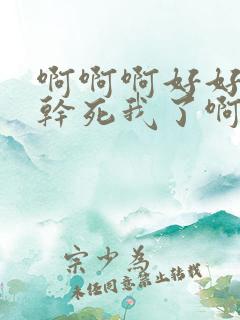 啊啊啊好好
幹死我了啊
宗少為
未经同意禁止转载